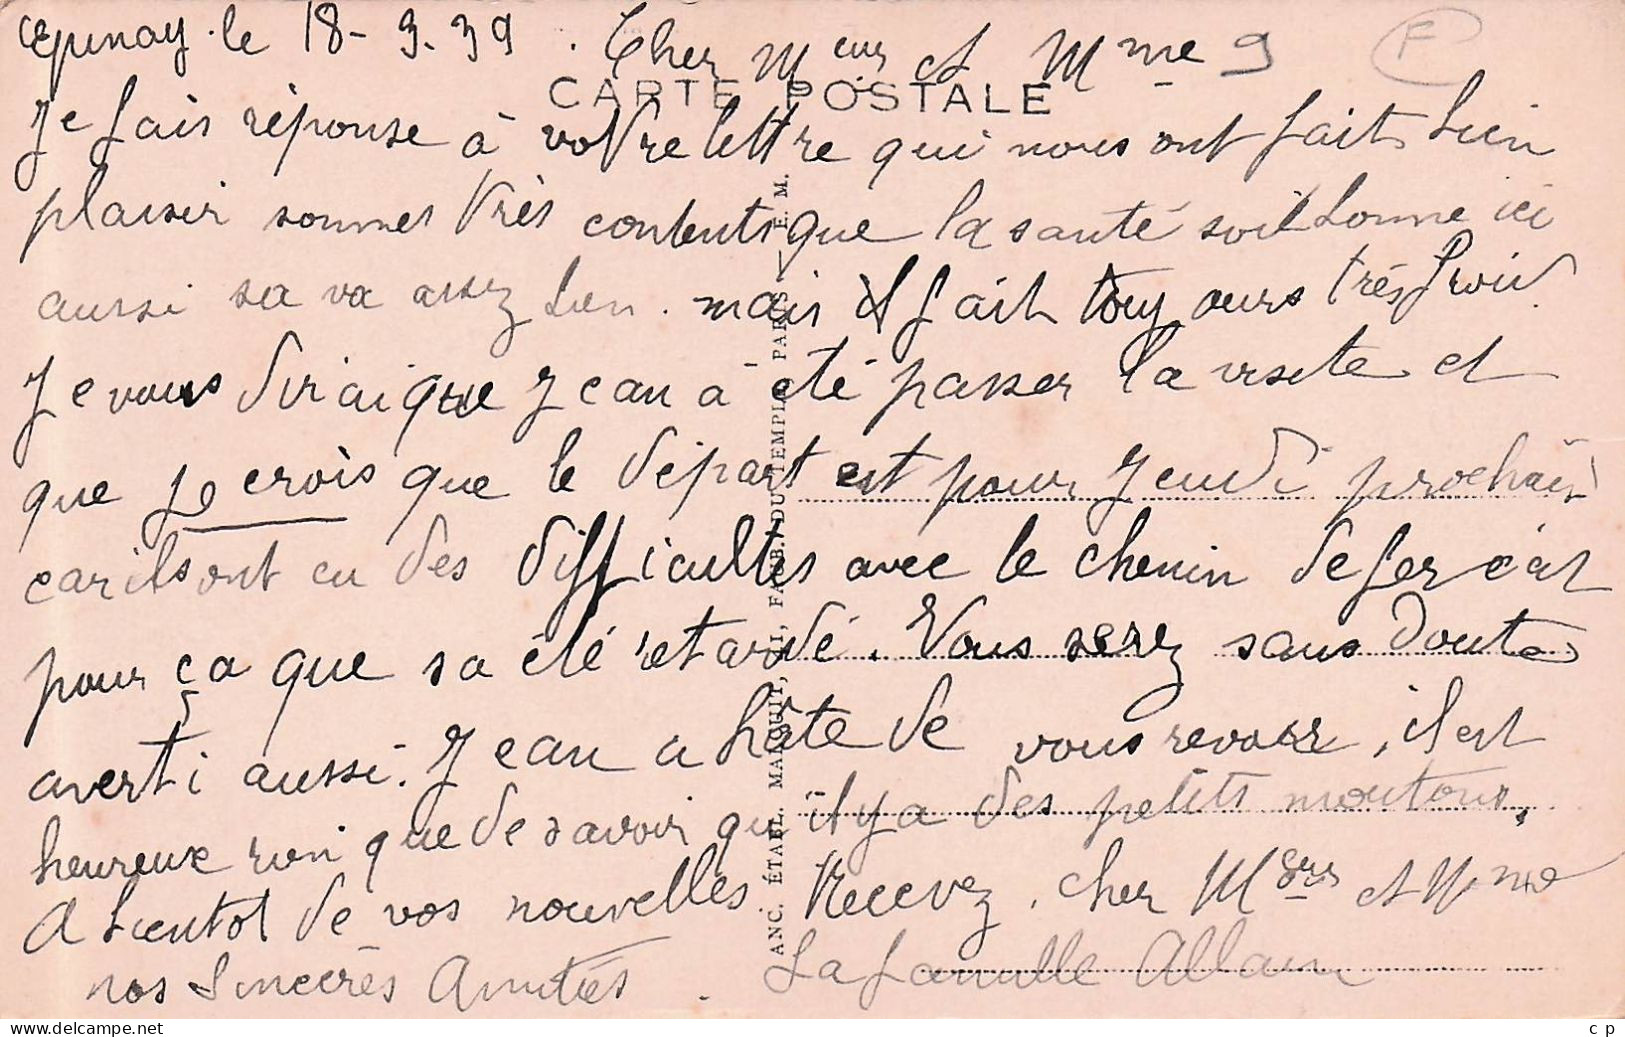 Epinay le 18-3.39. Cher Meur et Mme 9
F
CARTE POSTALE
Je fais réponse à votre lettre qui nous ont fait bien
plaisir sommes très contents que la santé soit bonne ici
aussi sa va assez bien. mais il fait toujours très froid.
Je vous dirai que Jean à été passer la visite et
que je crois que le départ est pour Jeudi prochain
car ils ont eu des difficultés avec le chemin de fer c'est
pour ça que sa été retardé. Vous serez sans doute
averti aussi. Jean a hâte de vous revoir, il est
heureux rien que de savoir qu'il y a des petits moutons.
A bientot de vos nouvelles Recevez. Cher Meurs et Mme
nos Sincères Amitiés. La famille Allain
ANC. ÉTABL. MALCUIT, FAUB. DU TEMPLE, PARIS E. M.
c p